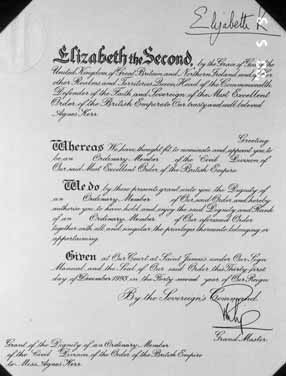 Elizabeth R
Elizabeth the Second, by the Grace of God of the
United Kingdom of Great Britain and Northern Ireland and of Her
other Realms and Territories Queen, Head of the Commonwealth,
Defender of the Faith and Sovereign of the Most Excellent
Order of the British Empire to Our trusty and well beloved
Agnes Kerr
Greeting
Whereas We have thought fit to nominate and appoint you to
be an Ordinary Member of the Civil Division of
Our said Most Excellent Order of the British Empire
We do by these presents grant unto you the Dignity of
an Ordinary Member of Our said Order and hereby
authorise you to have hold and enjoy the said Dignity and Rank
of an Ordinary Member of Our aforesaid Order
together with all and singular the privileges thereunto belonging or
appertaining.
Given at Our Court at Saint James's under Our Sign
Manual and the Seal of Our said Order this Thirty first
day of December 1993 in the Forty second year of Our Reign
By the Sovereign's Command.
Grand Master.
Grant of the Dignity of an Ordinary Member
of the Civil Division of the Order of the British Empire
to Miss Agnes Kerr